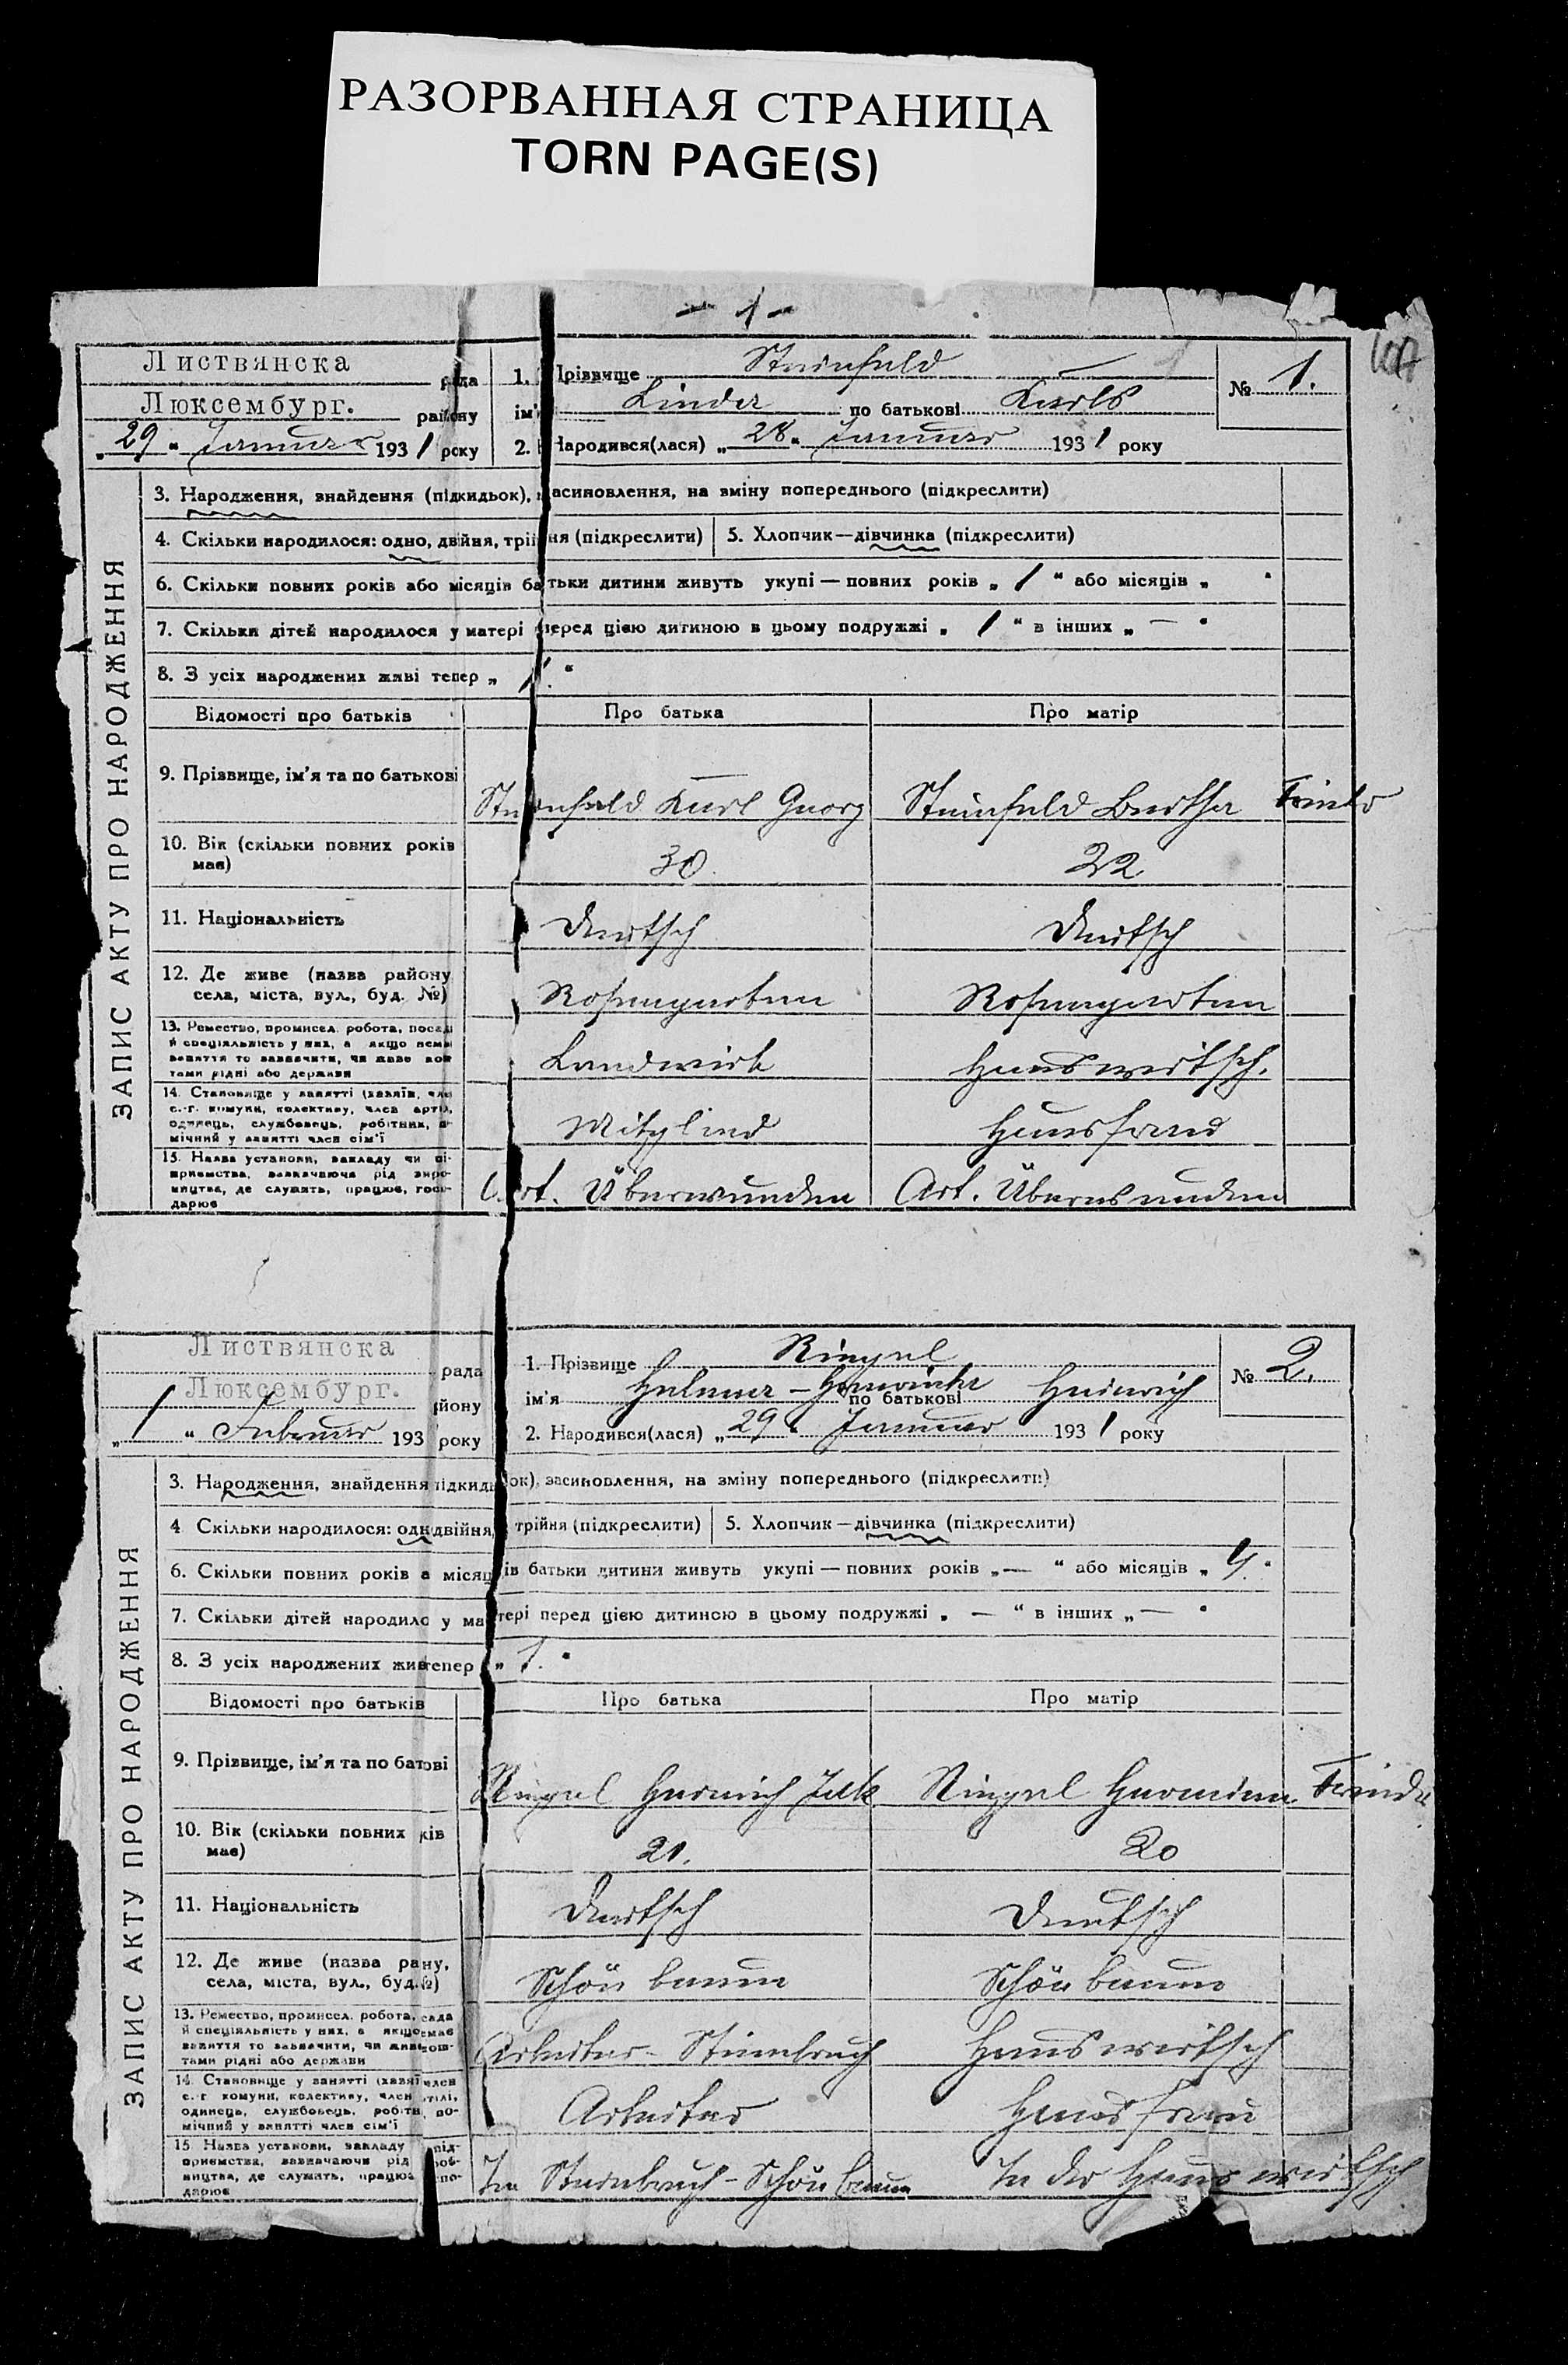 РАЗОРВАННАЯ СТРАНИЦА
TORN PAGE(S)
— 1 —
Листвянска рада
Люксембург. району
„29“ Januar 1931 року
1. Прізвище Steinfeld
ім'я по батькові Karls
2. Народився(лася) „28“ Januar 1931 року
№ 1.
ЗАПИС АКТУ ПРО НАРОДЖЕННЯ
3. Народження, знайдення (підкидьок), засиновлення, на зміну попереднього (підкреслити)
4. Скільки народилося: одно, двійня, трійня (підкреслити) 5. Хлопчик—дівчинка (підкреслити)
6. Скільки повних років або місяців батьки дитини живуть укупі — повних років „ 1 “ або місяців „ “
7. Скільки дітей народилося у матері перед цією дитиною в цьому подружжі „ 1 “ в інших „ — “
8. З усіх народжених живі тепер „ 1. “
Відомості про батьків Про батька Про матір
9. Прізвище, ім'я та по батькові
Steinfeld Karl Georg Steinfeld Bertha
10. Вік (скільки повних років має) 30. 22
11. Національність Deutsch Deutsch
12. Де живе (назва району села, міста, вул., буд. №) Rosengarten Rosengarten
13. Ремество, промисел, робота, посада й спеціяльність у них, а якщо немає заняття то зазначити, чи живе коштами рідні або держави
Landwirt Hauswirtsch.
14. Становище у занятті (хазяїн, член с.-г. комуни, колективу, член артілі, одинець, службовець, робітник, помічний у занятті член сім'ї
Mitglied Hausfrau
15. Назва установи, закладу чи підприємства, зазначаючи рід виробництва, де служить, працює, господарює
Art. Überwunden Art. Überwunden
Листвянска рада
Люксембург. району
„1“ Februar 193 року
1. Прізвище Ringel
ім'я по батькові Heinrich
2. Народився(лася) „29“ Januar 1931 року
№ 2.
ЗАПИС АКТУ ПРО НАРОДЖЕННЯ
3. Народження, знайдення підкидьок), засиновлення, на зміну попереднього (підкреслити)
4. Скільки народилося: одн двійня, трійня (підкреслити) 5. Хлопчик—дівчинка (підкреслити)
6. Скільки повних років а місяців батьки дитини живуть укупі — повних років „—“ або місяців „ 4. “
7. Скільки дітей народило у матері перед цією дитиною в цьому подружжі „ — “ в інших „ — “
8. З усіх народжених жив тепер „ 1. “
Відомості про батьків Про батька Про матір
9. Прізвище, ім'я та по батові
Ringel Heinrich Ringel
10. Вік (скільки повних ків має) 21. 20
11. Національність Deutsch Deutsch
12. Де живе (назва рану, села, міста, вул., буд. №) Schönbaum Schönbaum
13. Ремество, промисел, робота, сада й спеціяльність у них, а якщо емає заняття то зазначити, чи живе коштами рідні або держави
Arbeiter - Steinbruch Hauswirtsch
14. Становище у занятті (хазяї член с.-г. комуни, колективу, член ртілі, одинець, службовець, робітн, помічний у занятті член сім'ї
Arbeiter Hausfrau
15. Назва установи, закладу підприємства, зазначаючи рід виробництва, де служить, працює, господарює
Im Steinbruch - Schönbaum In der Hauswirtsch